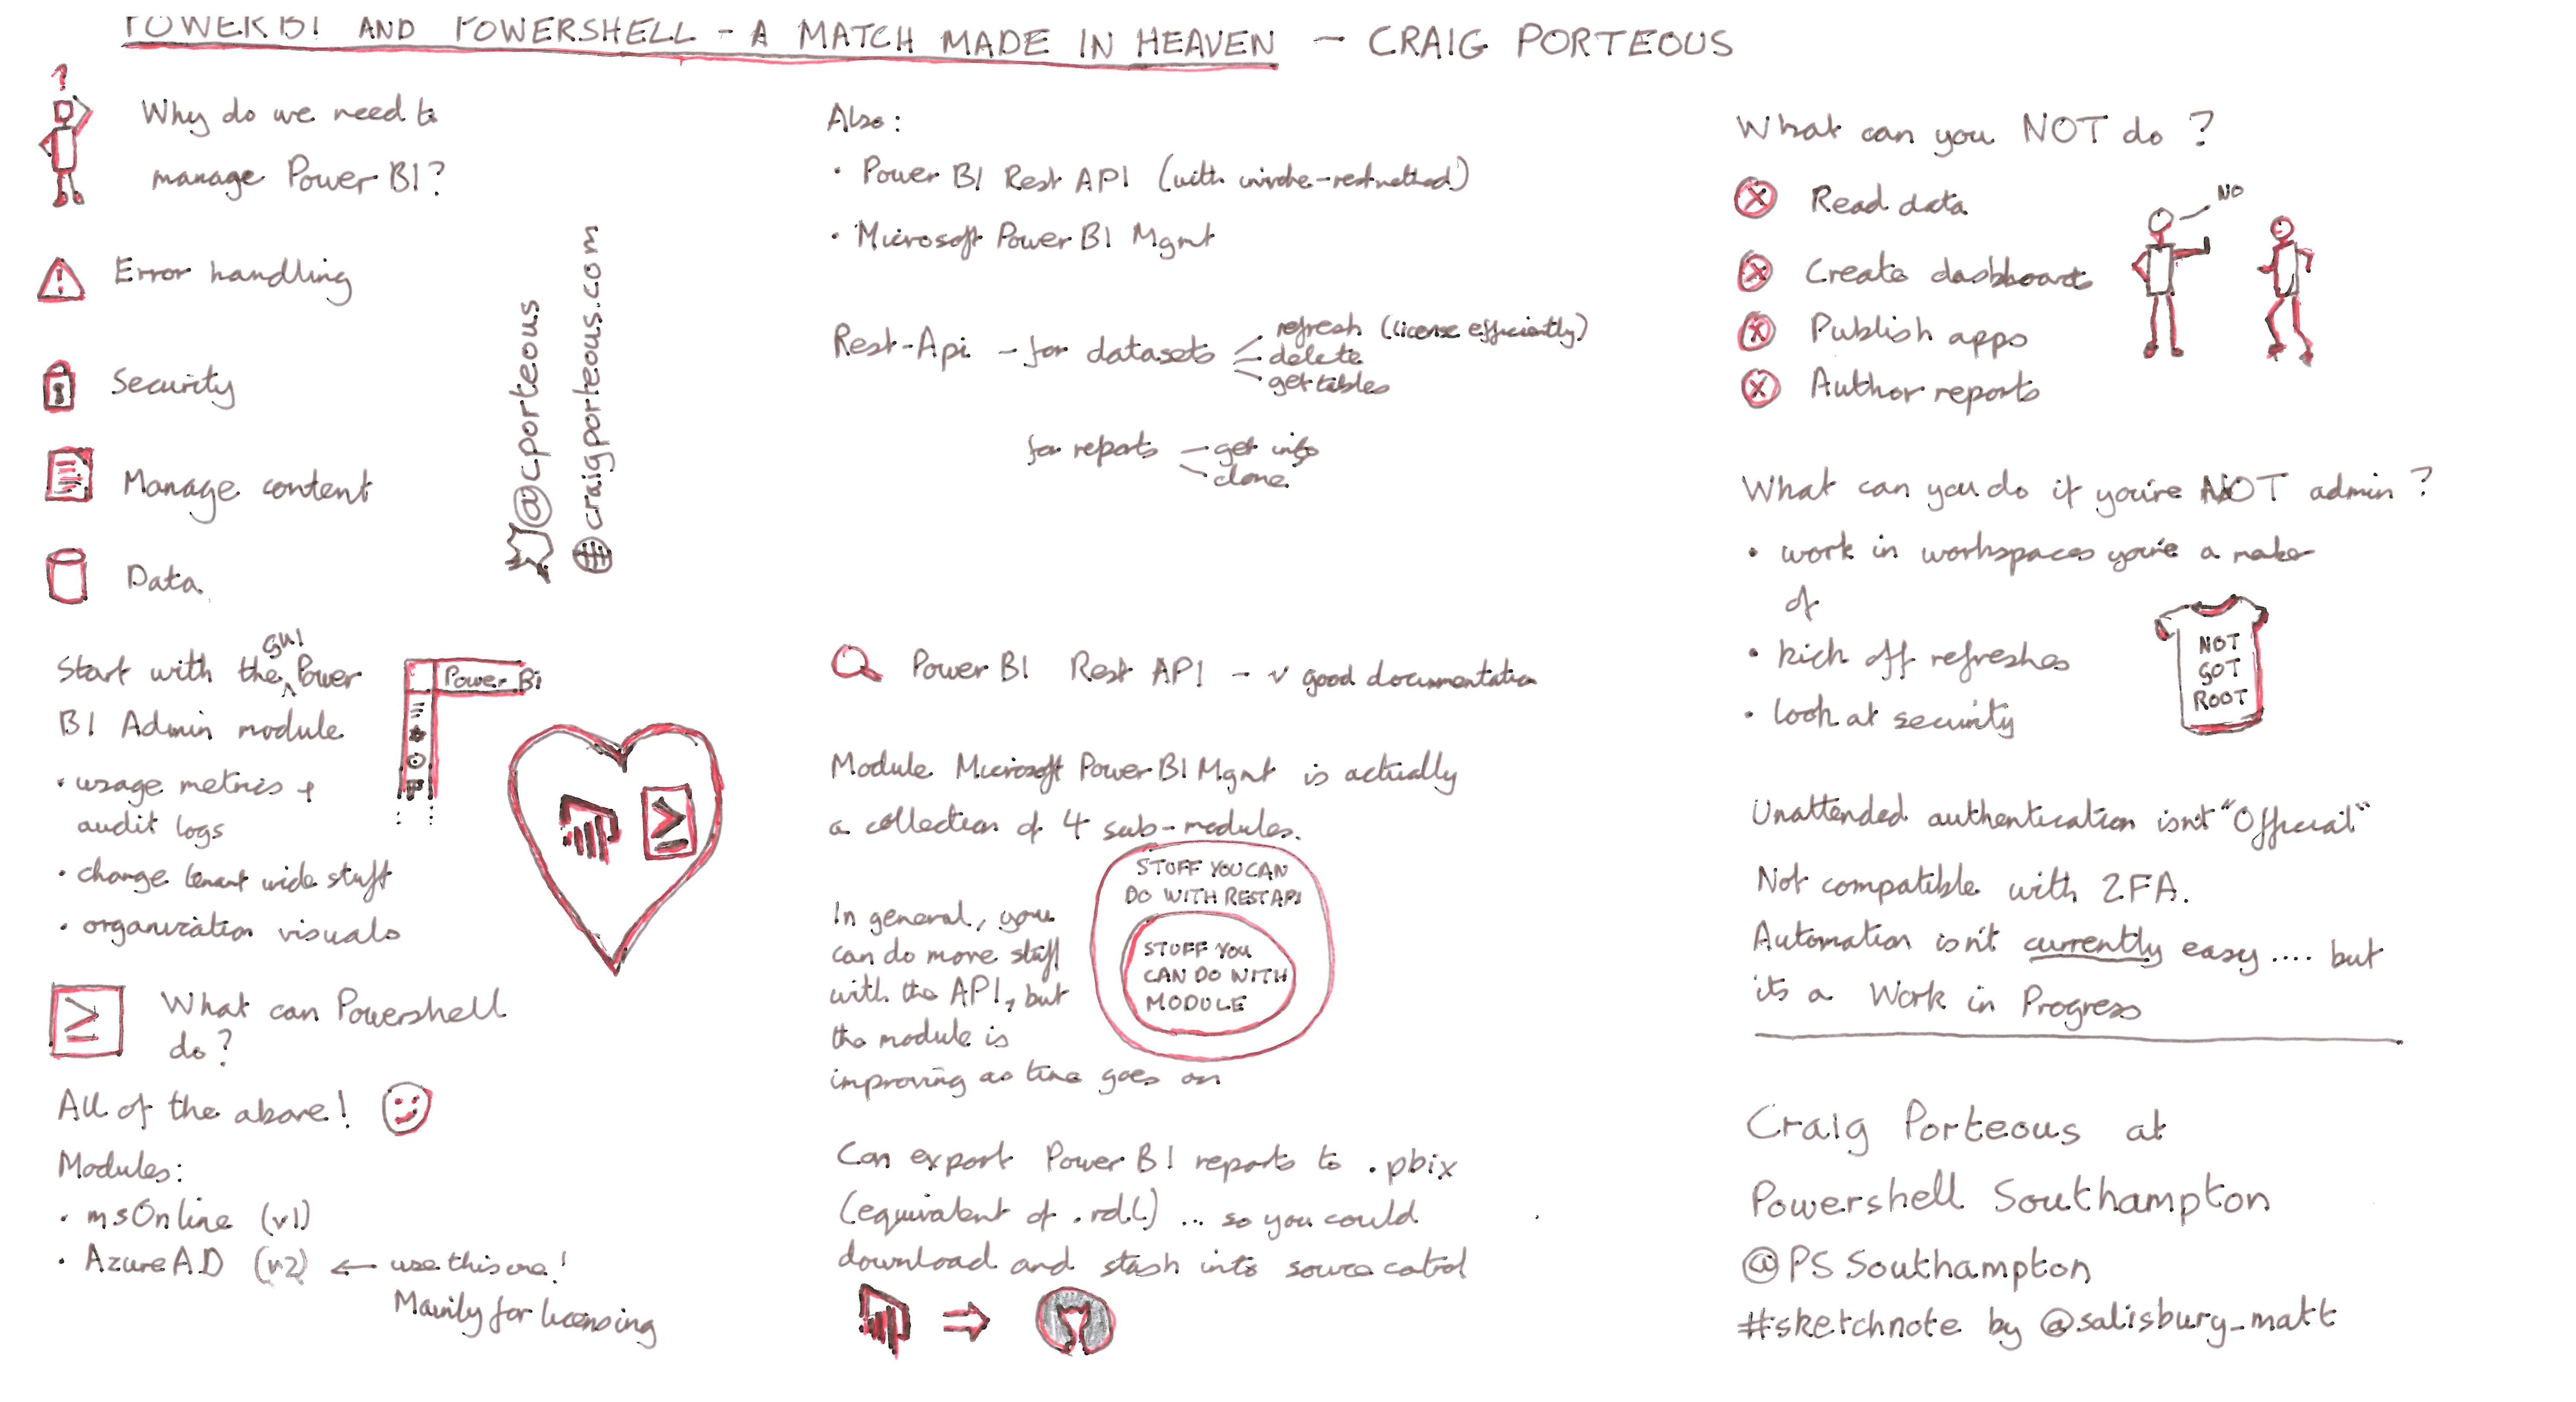 POWER BI AND POWERSHELL - A MATCH MADE IN HEAVEN - CRAIG PORTEOUS
?
Why do we need to
manage Power BI?
Error handling
Security
Manage content
Data
@cporteous
craigporteous.com
Start with the GUI Power
BI Admin module
• usage metrics +
audit logs
• change tenant wide stuff
• organization visuals
Power Bi
What can Powershell
do?
All of the above!
Modules:
• msOnline (v1)
• AzureAD (v2) ← use this one!
Mainly for licensing
Also:
• Power BI Rest API (with invoke-restmethod)
• Microsoft Power BI Mgmt
Rest-Api - for datasets
refresh (license efficiently)
delete
get tables
for reports
get info
clone
Power BI Rest API - v good documentation
Module Microsoft Power BI Mgmt is actually
a collection of 4 sub-modules.
In general, you
can do more stuff
with the API, but
the module is
improving as time goes on
STUFF YOU CAN
DO WITH REST API
STUFF YOU
CAN DO WITH
MODULE
Can export Power BI reports to .pbix
(equivalent of .rdl) ... so you could
download and stash into source control
What can you NOT do?
Read data
Create dashboards
Publish apps
Author reports
NO
What can you do if you're NOT admin?
• work in workspaces you're a maker
of
• kick off refreshes
• look at security
NOT
GOT
ROOT
Unattended authentication isn't "Official"
Not compatible with 2FA.
Automation isn't currently easy .... but
its a Work in Progress
Craig Porteous at
Powershell Southampton
@PSSouthampton
#sketchnote by @salisbury_matt